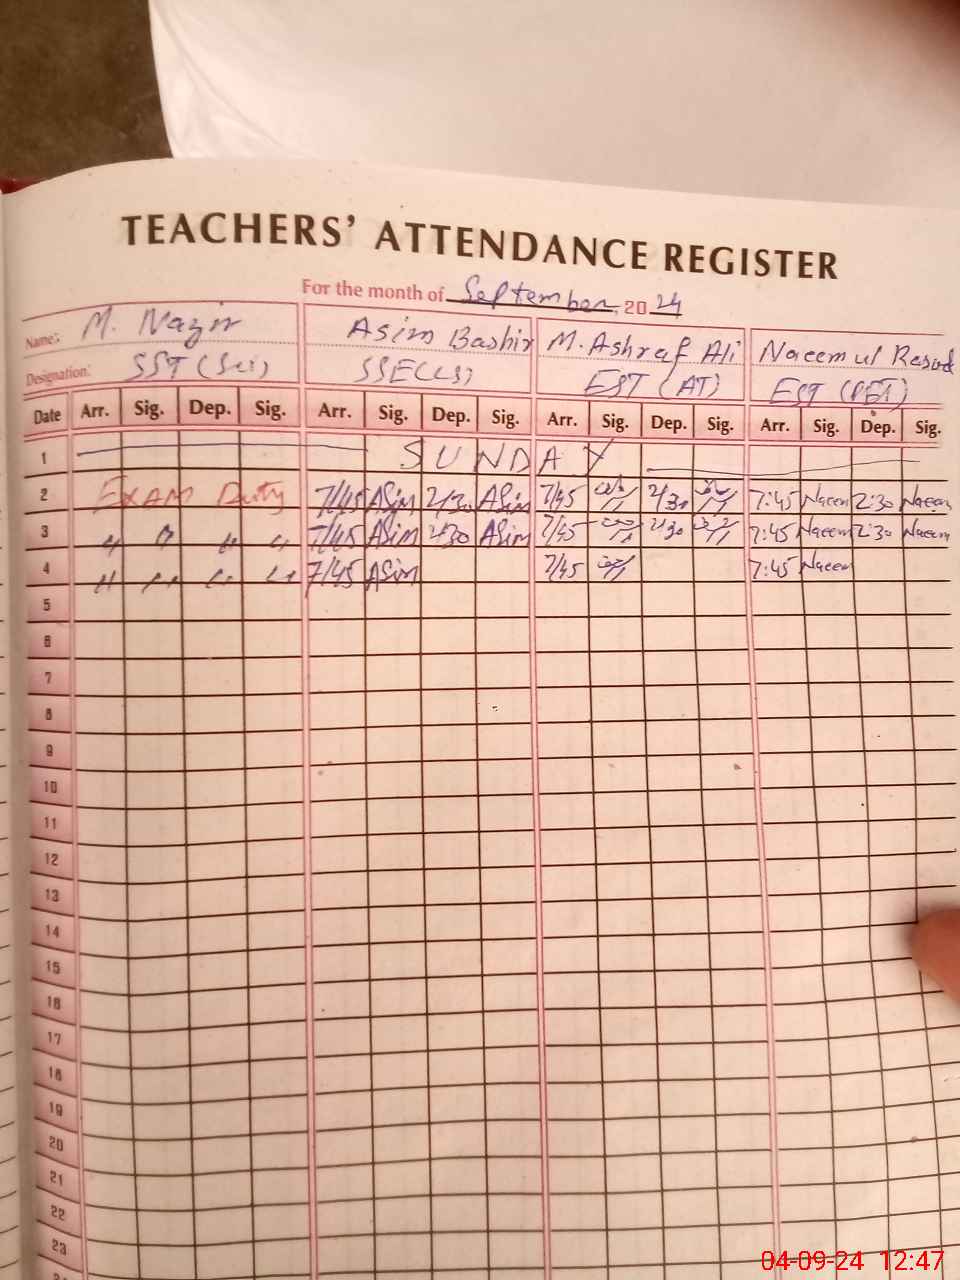 TEACHERS' ATTENDANCE REGISTER
For the month of September, 2024
Name: M. Nazir Asim Bashir M. Ashraf Ali Naeem ul Rasool
Designation: SST (Sci) SSE(CS) EST (AT) EST (PET)
Date Arr. Sig. Dep. Sig. Arr. Sig. Dep. Sig. Arr. Sig. Dep. Sig. Arr. Sig. Dep. Sig.
1 SUNDAY
2 EXAM Duty 7/45 Asim 2/30 Asim 7/45 2/30 7:45 Naeem 2:30 Naeem
3 " " " " 7/45 Asim 2/30 Asim 7/45 2/30 7:45 Naeem 2:30 Naeem
4 " " " " 7/45 Asim 7/45 7:45 Naeem
5
6
7
8
9
10
11
12
13
14
15
16
17
18
19
20
21
22
23
04-09-24 12:47